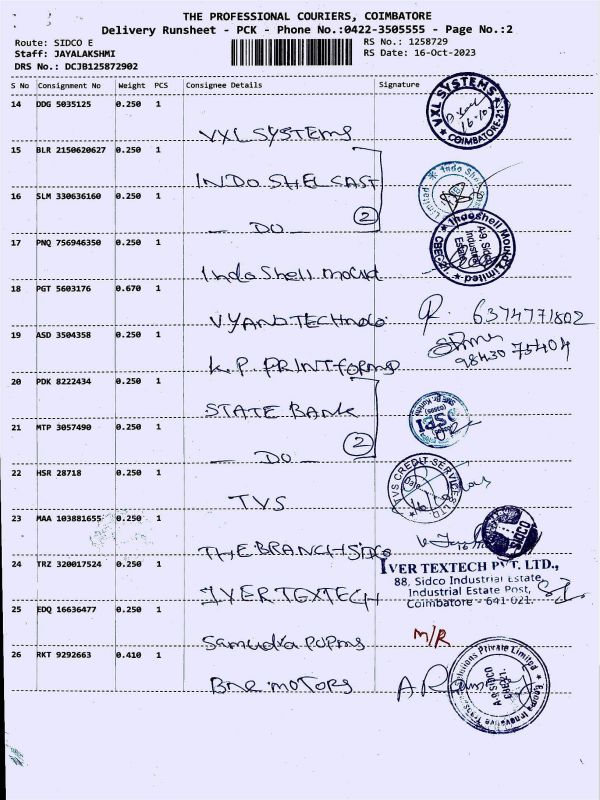 THE PROFESSIONAL COURIERS, COIMBATORE
Delivery Runsheet - PCK - Phone No.:0422-3505555 - Page No.:2
Route: SIDCO E
RS No.: 1258729
Staff: JAYALAKSHMI
RS Date: 16-Oct-2023
DRS No.: DCJB125872902
S No Consignment No Weight PCS Consignee Details Signature
14 DDG 5035125 0.250 1
VXL SYSTEMS
VXL SYSTEMS COIMBATORE-21
16-10
15 BLR 2150620627 0.250 1
INDO SHEL CAST
16 SLM 330636160 0.250 1
2
— DO —
17 PNQ 756946350 0.250 1
Indo Shell mould
Indoshell Mould Limited
A-9, Sidco Industrial Estate
18 PGT 5603176 0.670 1
VYANO TECHNOLO
6374771802
19 ASD 3504358 0.250 1
K.P. PRINT forms
98430 75404
20 PDK 8222434 0.250 1
STATE BANK
21 MTP 3057490 0.250 1
2
— DO —
22 HSR 28718 0.250 1
TVS
TVS CREDIT SERVICES LTD
23 MAA 103881655 0.250 1
THE BRANCH SIDCO
SIDCO
24 TRZ 320017524 0.250 1
IVER TEXTECH
IVER TEXTECH PVT. LTD.,
88, Sidco Industrial Estate,
Industrial Estate Post,
Coimbatore - 641-021.
25 EDQ 16636477 0.250 1
Samudra PUPMS
M/R
26 RKT 9292663 0.410 1
BNR MOTORS
Private Limited
A-9 SIDCO